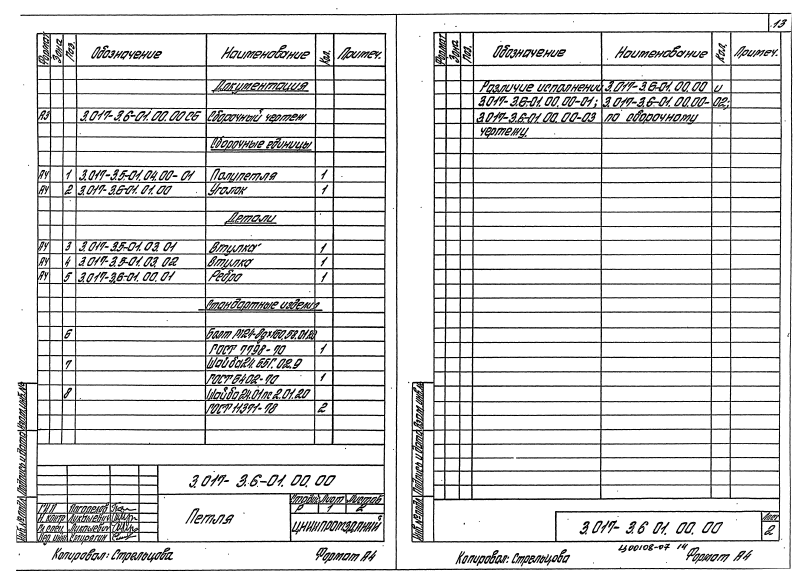 13
Формат Зона Поз. Обозначение Наименование Кол. Примеч.
Документация
А3 3.017-3.6-01.00.00 СБ Сборочный чертеж
Сборочные единицы
А4 1 3.017-3.5-01.04.00-01 Полупетля 1
А4 2 3.017-3.6-01.01.00 Уголок 1
Детали
А4 3 3.017-3.5-01.03.01 Втулка 1
А4 4 3.017-3.5-01.03.02 Втулка 1
А4 5 3.017-3.6-01.00.01 Ребро 1
Стандартные изделия
6 Болт М24-8g×160.58.01.20
ГОСТ 7798-70 1
7 Шайба 24.65Г.02.9
ГОСТ 6402-70 1
8 Шайба 24.01пс 2.01.20
ГОСТ 11371-78 2
3.017-3.6-01.00.00
Петля
Стадия Лист Листов
Р 1 2
ЦНИИПРОМЗДАНИЙ
ГИП
Н. контр. Лукашевич
Гл. спец. Лукашевич
Инв.№подл. Подпись и дата Взам.инв.№
Копировал: Стрельцова Формат А4
Формат Зона Поз. Обозначение Наименование Кол. Примеч.
Различие исполнений 3.017-3.6-01.00.00 и
3.017-3.6-01.00.00-01; 3.017-3.6-01.00.00-02;
3.017-3.6-01.00.00-03 по сборочному
чертежу.
Инв.№подл. Подпись и дата Взам.инв.№
3.017-3.6 01.00.00
Лист
2
Ц00108-07 14
Копировал: Стрельцова Формат А4